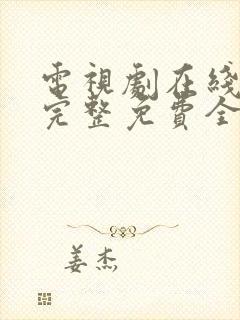 電視劇在綫
完整免費全
姜杰